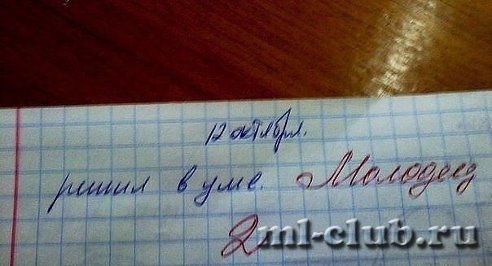 12 октября.
решил в уме. Молодец
2
ml-club.ru